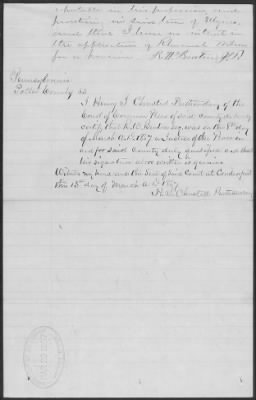 reputable in his profession and
practicing in said town of Ulysses
and that I have no interest in
the application of
for a pension
Pennsylvania
Potter County ss
I Henry J. Olmsted Prothonotary of the
Court of Common Pleas of said County do hereby
certify that was on the 8th day
of March A.D. 187 a Justice of the Peace in
and for said County duly qualified and that
his signature above written is genuine
Witness my hand and the Seal of said Court at Coudersport
this 15th day of March A.D. 187
Olmsted Prothonotary